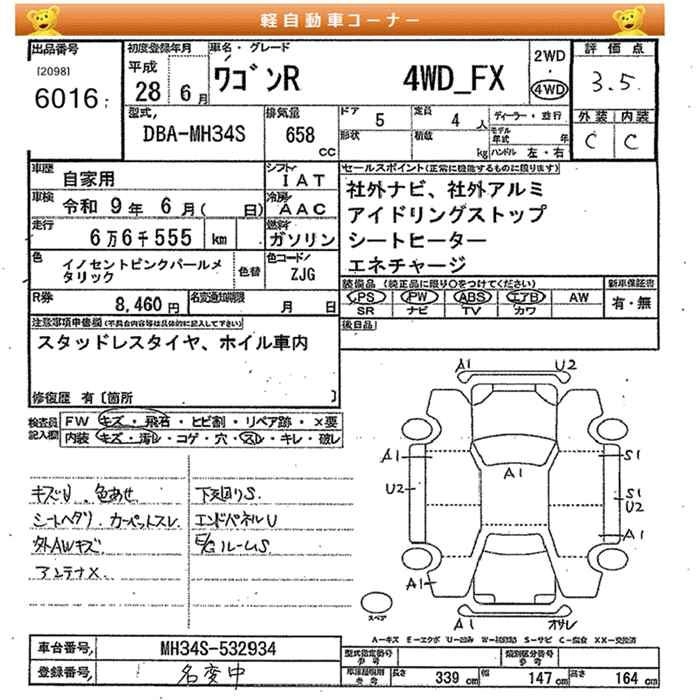 軽自動車コーナー
出品番号
[2098]
6016
初度登録年月
平成
28 6月
車名・グレード
ワゴンR 4WD_FX
2WD
・
4WD
評価点
3.5
外装 内装
C C
型式
DBA-MH34S
排気量
658
CC
ドア 5
定員 4 人
形状
積載 kg
ディーラー・並行
モデル年式 年
ハンドル 左・右
車歴
自家用
車検
令和 9年 6月( 日)
走行
6万6千555 km
色
イノセントピンクパールメタリック
色替
シフト
IAT
冷房
AAC
燃料
ガソリン
色コード
ZJG
R券
8,460円
名変期限
月 日
セールスポイント(正常に機能するものに限ります)
社外ナビ、社外アルミ
アイドリングストップ
シートヒーター
エネチャージ
装備品 (純正品に限り○をつけてください)
PS PW ABS エアB AW
SR ナビ TV カワ
新車保証書
有・無
後日品
注意事項申告欄(不具合内容等は具体的に記入して下さい)
スタッドレスタイヤ、ホイル車内
修復歴 有〔箇所 〕
検査員記入欄
FW キズ・飛石・ヒビ割・リペア跡・×要
内装 キズ・汚レ・コゲ・穴・スレ・キレ・破レ
キズU 色あせ
シートヘタリ カーペットスレ
外AWキズ
アンテナX
下廻りS
エンドパネルU
E/GルームS
A1 U2
A1
A1
U2
S1
S1
U2
A1
A1
A1 オサレ
スペア
A=キズ E=エクボ U=凹み W=補修跡 S=サビ C=腐食 XX=交換済
車台番号
MH34S-532934
登録番号
名変中
型式指定番号
参考
類別区分番号
参考
車体類別
参考
長さ 339 cm
幅 147 cm
高さ 164 cm